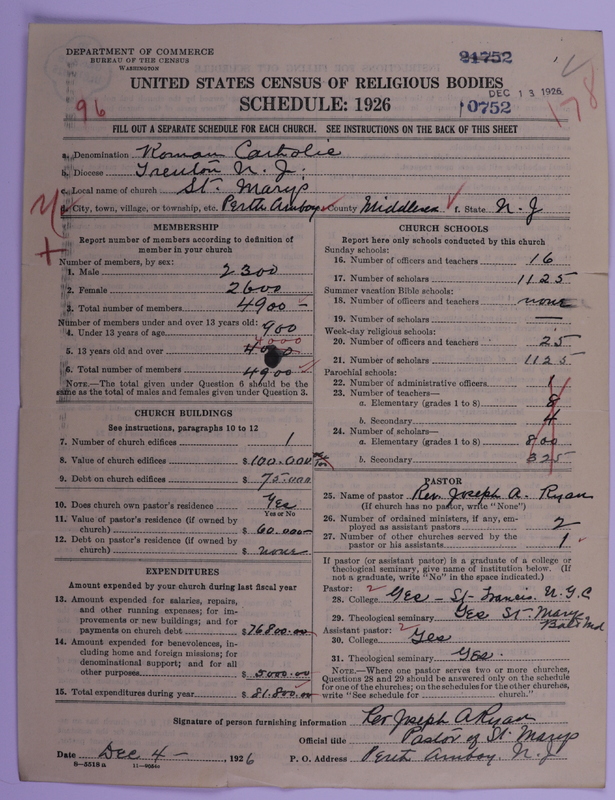 DEPARTMENT OF COMMERCE
BUREAU OF THE CENSUS
WASHINGTON
91752
UNITED STATES CENSUS OF RELIGIOUS BODIES
DEC 13 1926
SCHEDULE: 1926
10752
96
178
FILL OUT A SEPARATE SCHEDULE FOR EACH CHURCH. SEE INSTRUCTIONS ON THE BACK OF THIS SHEET
a. Denomination Roman Catholic
b. Diocese Trenton N. J.
c. Local name of church St. Marys
d. City, town, village, or township, etc. Perth Amboy County Middlesex f. State N. J
MEMBERSHIP
Report number of members according to definition of
member in your church
Number of members, by sex:
1. Male 2300
2. Female 2600
3. Total number of members 4900
Number of members under and over 13 years old:
4. Under 13 years of age 900
4000
5. 13 years old and over
6. Total number of members 4900
NOTE.—The total given under Question 6 should be the
same as the total of males and females given under Question 3.
CHURCH BUILDINGS
See instructions, paragraphs 10 to 12
7. Number of church edifices 1
8. Value of church edifices $100.000
9. Debt on church edifices $75.000
10. Does church own pastor's residence Yes
Yes or No
11. Value of pastor's residence (if owned by
church) $60.000
12. Debt on pastor's residence (if owned by
church) $none
EXPENDITURES
Amount expended by your church during last fiscal year
13. Amount expended for salaries, repairs,
and other running expenses; for im-
provements or new buildings; and for
payments on church debt $76800.00
14. Amount expended for benevolences, in-
cluding home and foreign missions; for
denominational support; and for all
other purposes $5000.00
15. Total expenditures during year $81.800.00
CHURCH SCHOOLS
Report here only schools conducted by this church
Sunday schools:
16. Number of officers and teachers 16
17. Number of scholars 1125
Summer vacation Bible schools:
18. Number of officers and teachers none
19. Number of scholars —
Week-day religious schools:
20. Number of officers and teachers 25
21. Number of scholars 1125
Parochial schools:
22. Number of administrative officers 1
23. Number of teachers—
a. Elementary (grades 1 to 8) 8
b. Secondary 4
24. Number of scholars—
a. Elementary (grades 1 to 8) 800
b. Secondary 325
PASTOR
25. Name of pastor Rev. Joseph A. Ryan
(If church has no pastor, write "None")
26. Number of ordained ministers, if any, em-
ployed as assistant pastors 2
27. Number of other churches served by the
pastor or his assistants 1
If pastor (or assistant pastor) is a graduate of a college or
theological seminary, give name of institution below. (If
not a graduate, write "No" in the space indicated.)
Pastor:
28. College Yes - St. Francis. N. Y. C
29. Theological seminary Yes St. Marys
Balt Md
Assistant pastor:
30. College Yes
31. Theological seminary Yes.
NOTE.—Where one pastor serves two or more churches,
Questions 28 and 29 should be answered only on the schedule
for one of the churches; on the schedules for the other churches,
write "See schedule for church."
Signature of person furnishing information Rev Joseph A Ryan
Official title Pastor of St. Marys
Date Dec 4 - , 1926 P. O. Address Perth Amboy. N. J
8-5518a